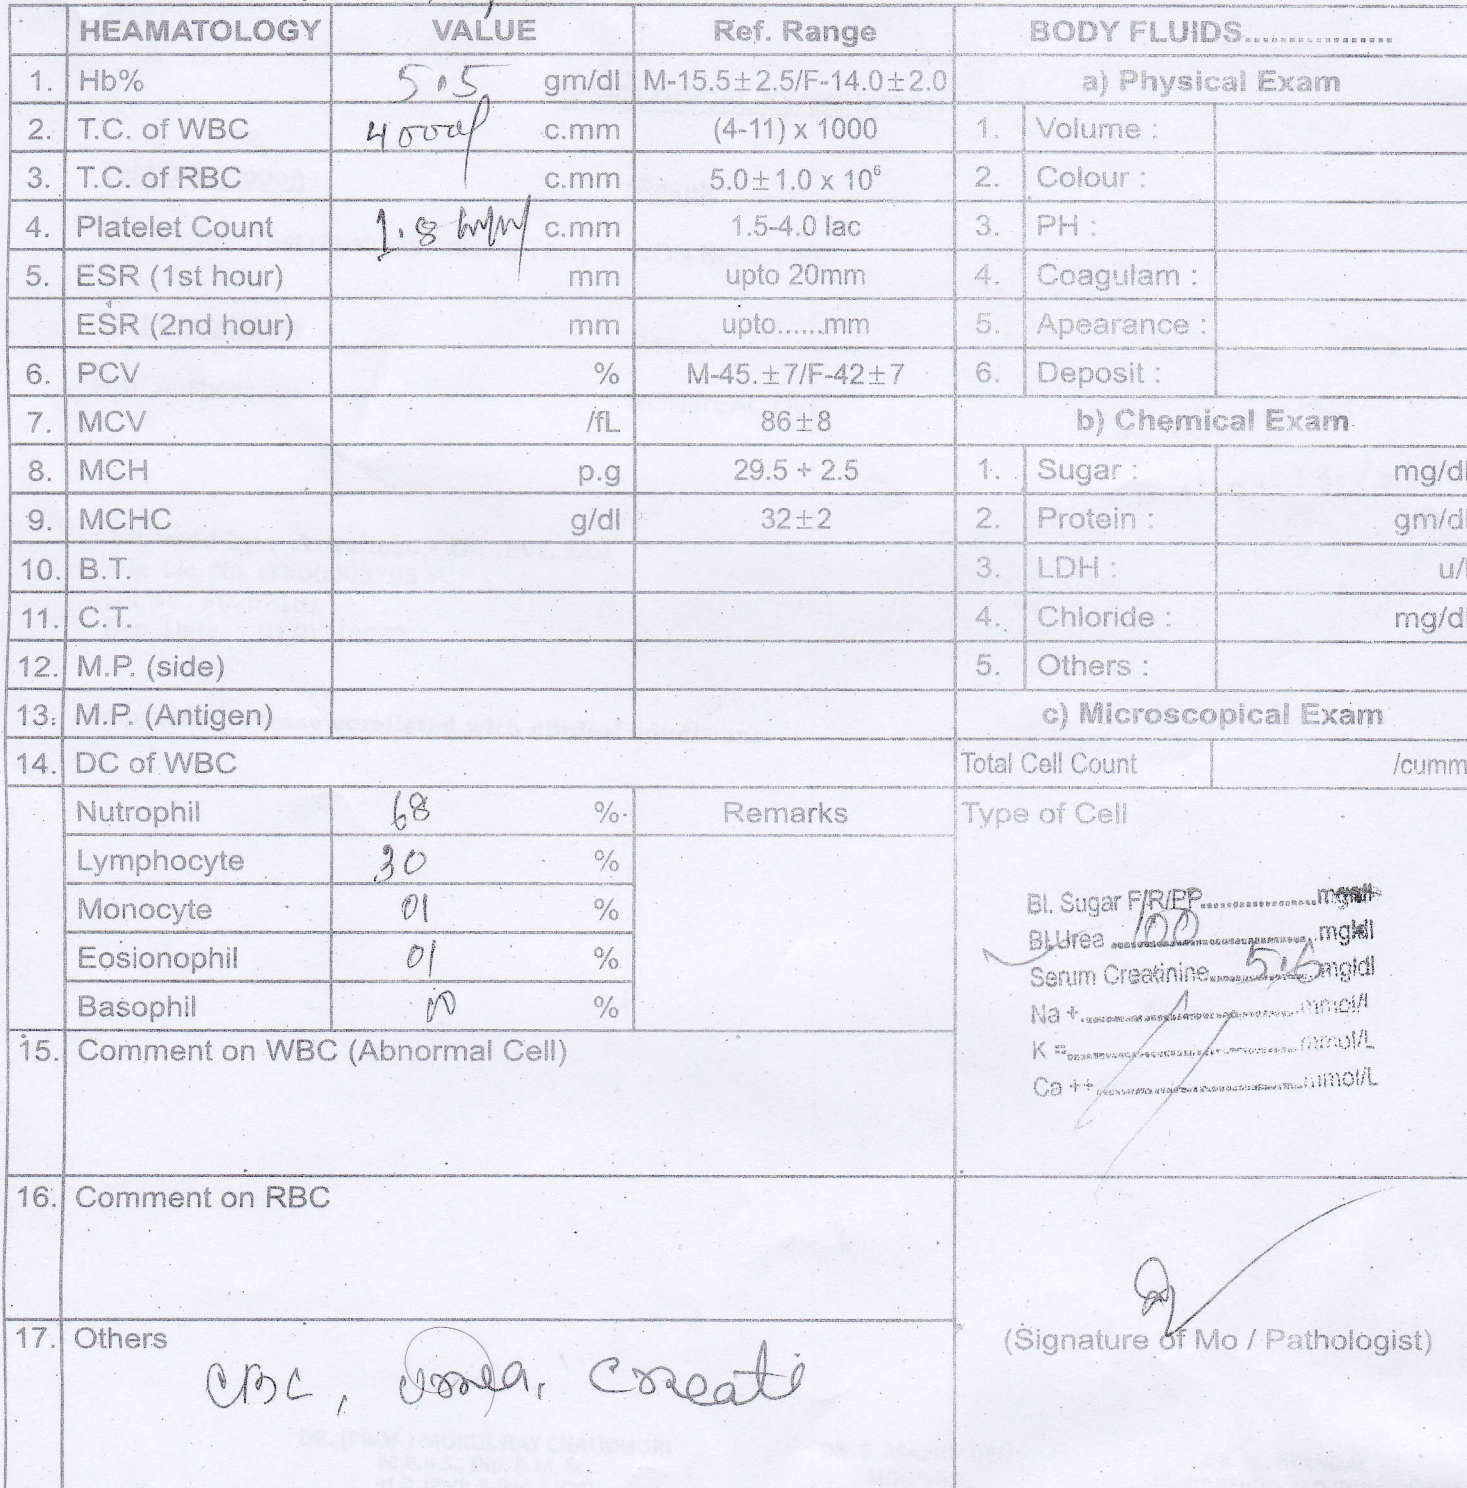 HEAMATOLOGY VALUE Ref. Range
1. Hb% 5.5 gm/dl M-15.5±2.5/F-14.0±2.0
2. T.C. of WBC 4000 c.mm (4-11) x 1000
3. T.C. of RBC c.mm 5.0±1.0 x 10⁶
4. Platelet Count 1.8 c.mm 1.5-4.0 lac
5. ESR (1st hour) mm upto 20mm
ESR (2nd hour) mm upto......mm
6. PCV % M-45.±7/F-42±7
7. MCV /fL 86±8
8. MCH p.g 29.5 + 2.5
9. MCHC g/dl 32±2
10. B.T.
11. C.T.
12. M.P. (side)
13. M.P. (Antigen)
14. DC of WBC
Nutrophil 68 % Remarks
Lymphocyte 30 %
Monocyte 01 %
Eosionophil 01 %
Basophil 00 %
15. Comment on WBC (Abnormal Cell)
16. Comment on RBC
17. Others
CBC, Urea, Creati
BODY FLUIDS..................
a) Physical Exam
1. Volume :
2. Colour :
3. PH :
4. Coagulam :
5. Apearance :
6. Deposit :
b) Chemical Exam
1. Sugar : mg/dl
2. Protein : gm/dl
3. LDH : u/l
4. Chloride : mg/dl
5. Others :
c) Microscopical Exam
Total Cell Count /cumm
Type of Cell
Bl. Sugar F/R/PP..................mg/dl
Bl.Urea 100 mg/dl
Serum Creatinine 5.6 mg/dl
Na +..................mmol/l
K =..................mmol/L
Ca ++..................mmol/L
(Signature of Mo / Pathologist)